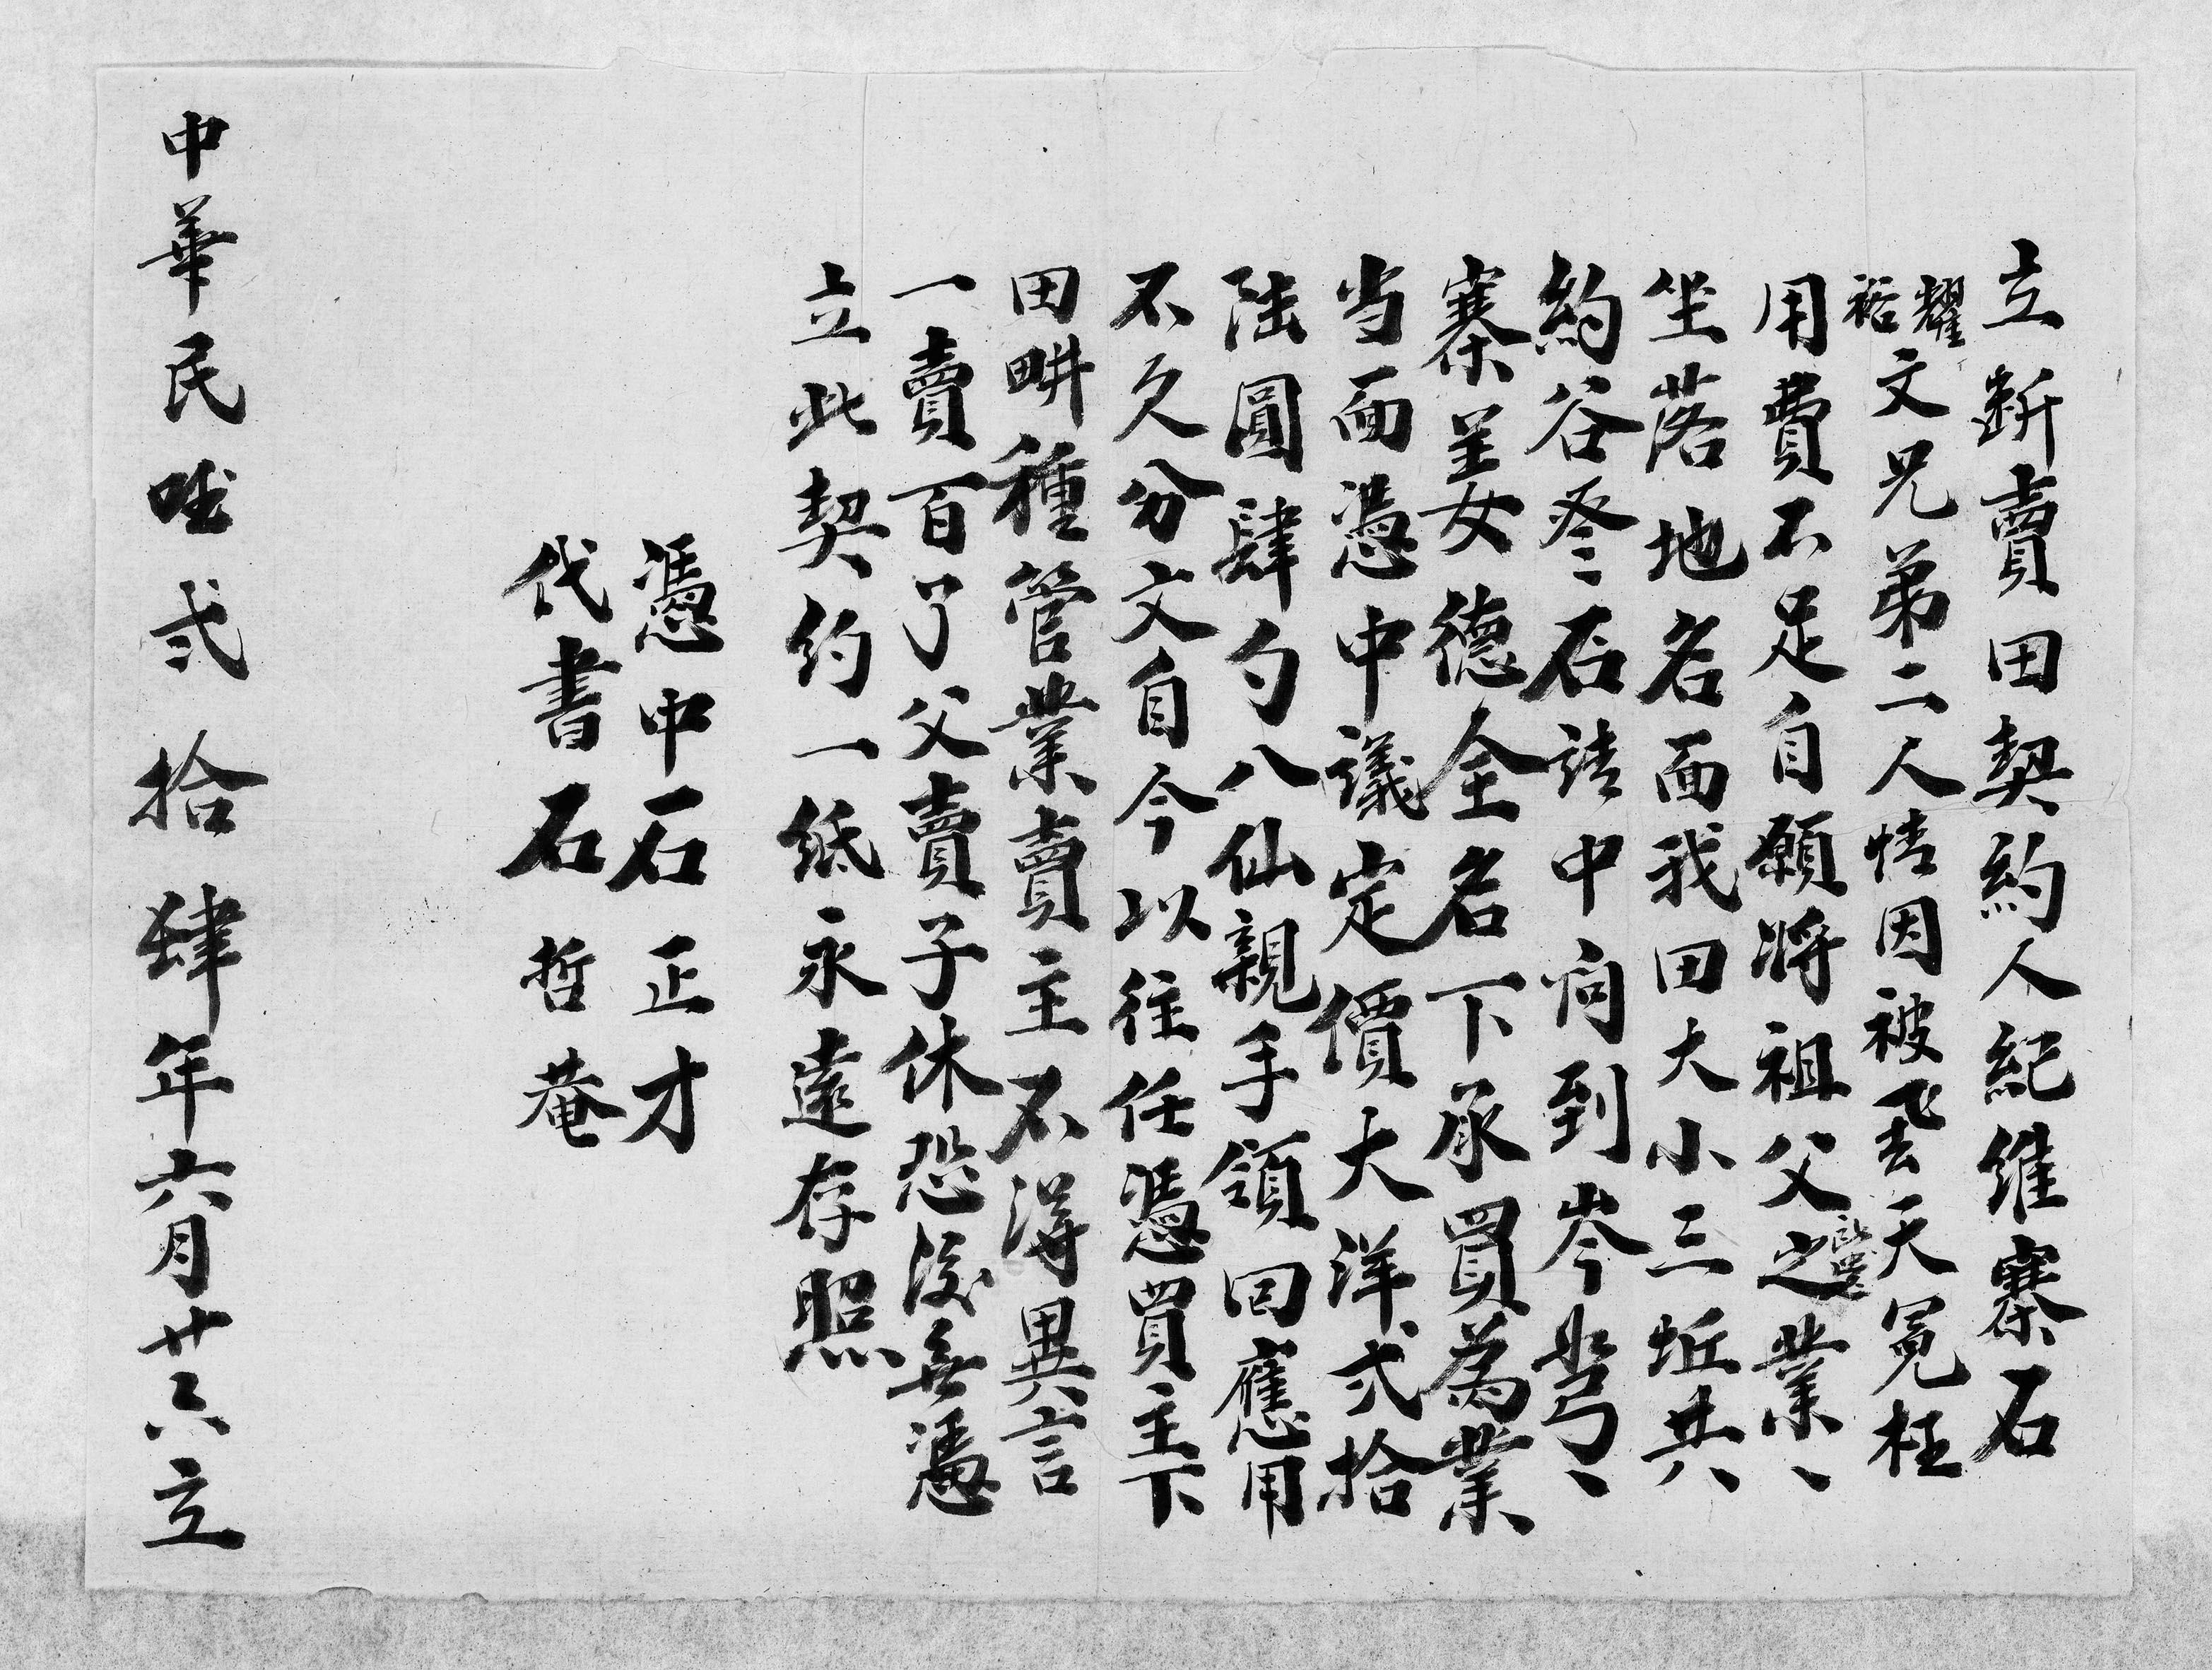 立断賣田契約人紀維寨石
耀裕文兄弟二人情因被飛去天冤枉
用費不足自願将祖父之業、
坐落地名面我田大小三坵共
約谷冬石請中向到岑
寨姜女德全名下承買為業
当面憑中議定價大洋弍拾
陆圓肆勺八仙親手領回應用
不欠分文自今以往任憑買主下
田畊種管業賣主不得異言
一賣百了父賣子休恐後無憑
立此契約一紙永遠存照
憑中石正才
代書石哲菴
中華民國弍拾肆年六月廿六立